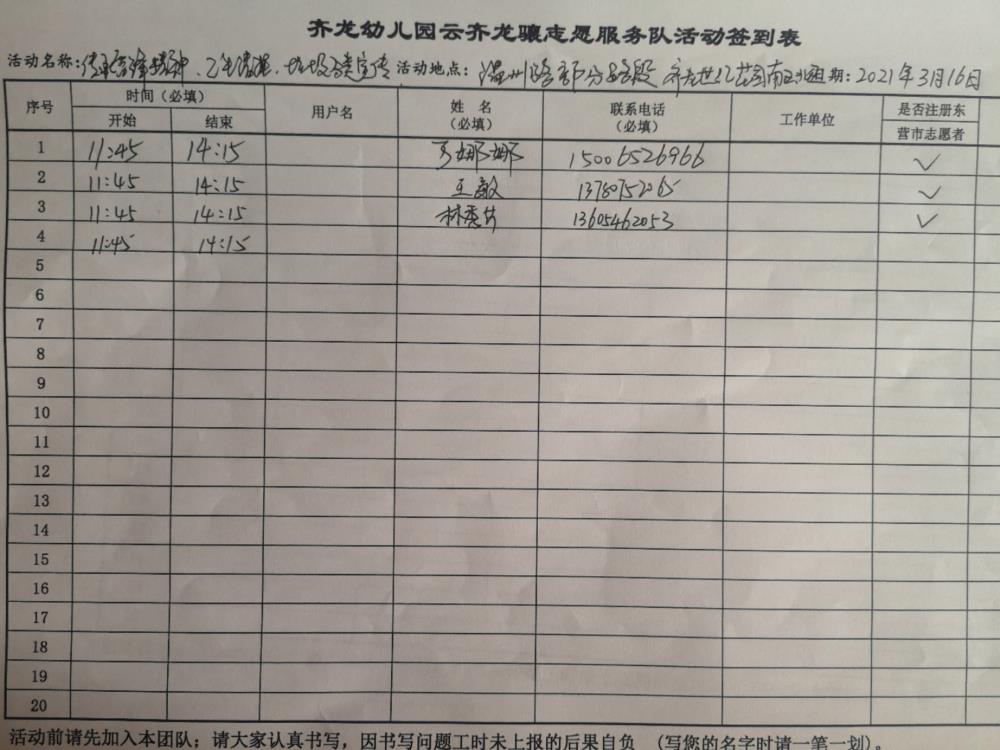 齐龙幼儿园云齐龙骧志愿服务队活动签到表
活动名称：传承雷锋精神、卫生清理、垃圾分类宣传 活动地点：温州路部分路段 齐龙世纪 期：2021年3月16日
序号 时间（必填） 用户名 姓 名（必填） 联系电话（必填） 工作单位 是否注册东营市志愿者
开始 结束
1 11:45 14:15 娜娜 15006526966 ✓
2 11:45 14:15 王敏 ✓
3 11:45 14:15 林秀 13605462053 ✓
4 11:45 14:15
5
6
7
8
9
10
11
12
13
14
15
16
17
18
19
20
活动前请先加入本团队；请大家认真书写，因书写问题工时未上报的后果自负 （写您的名字时请一笔一划）